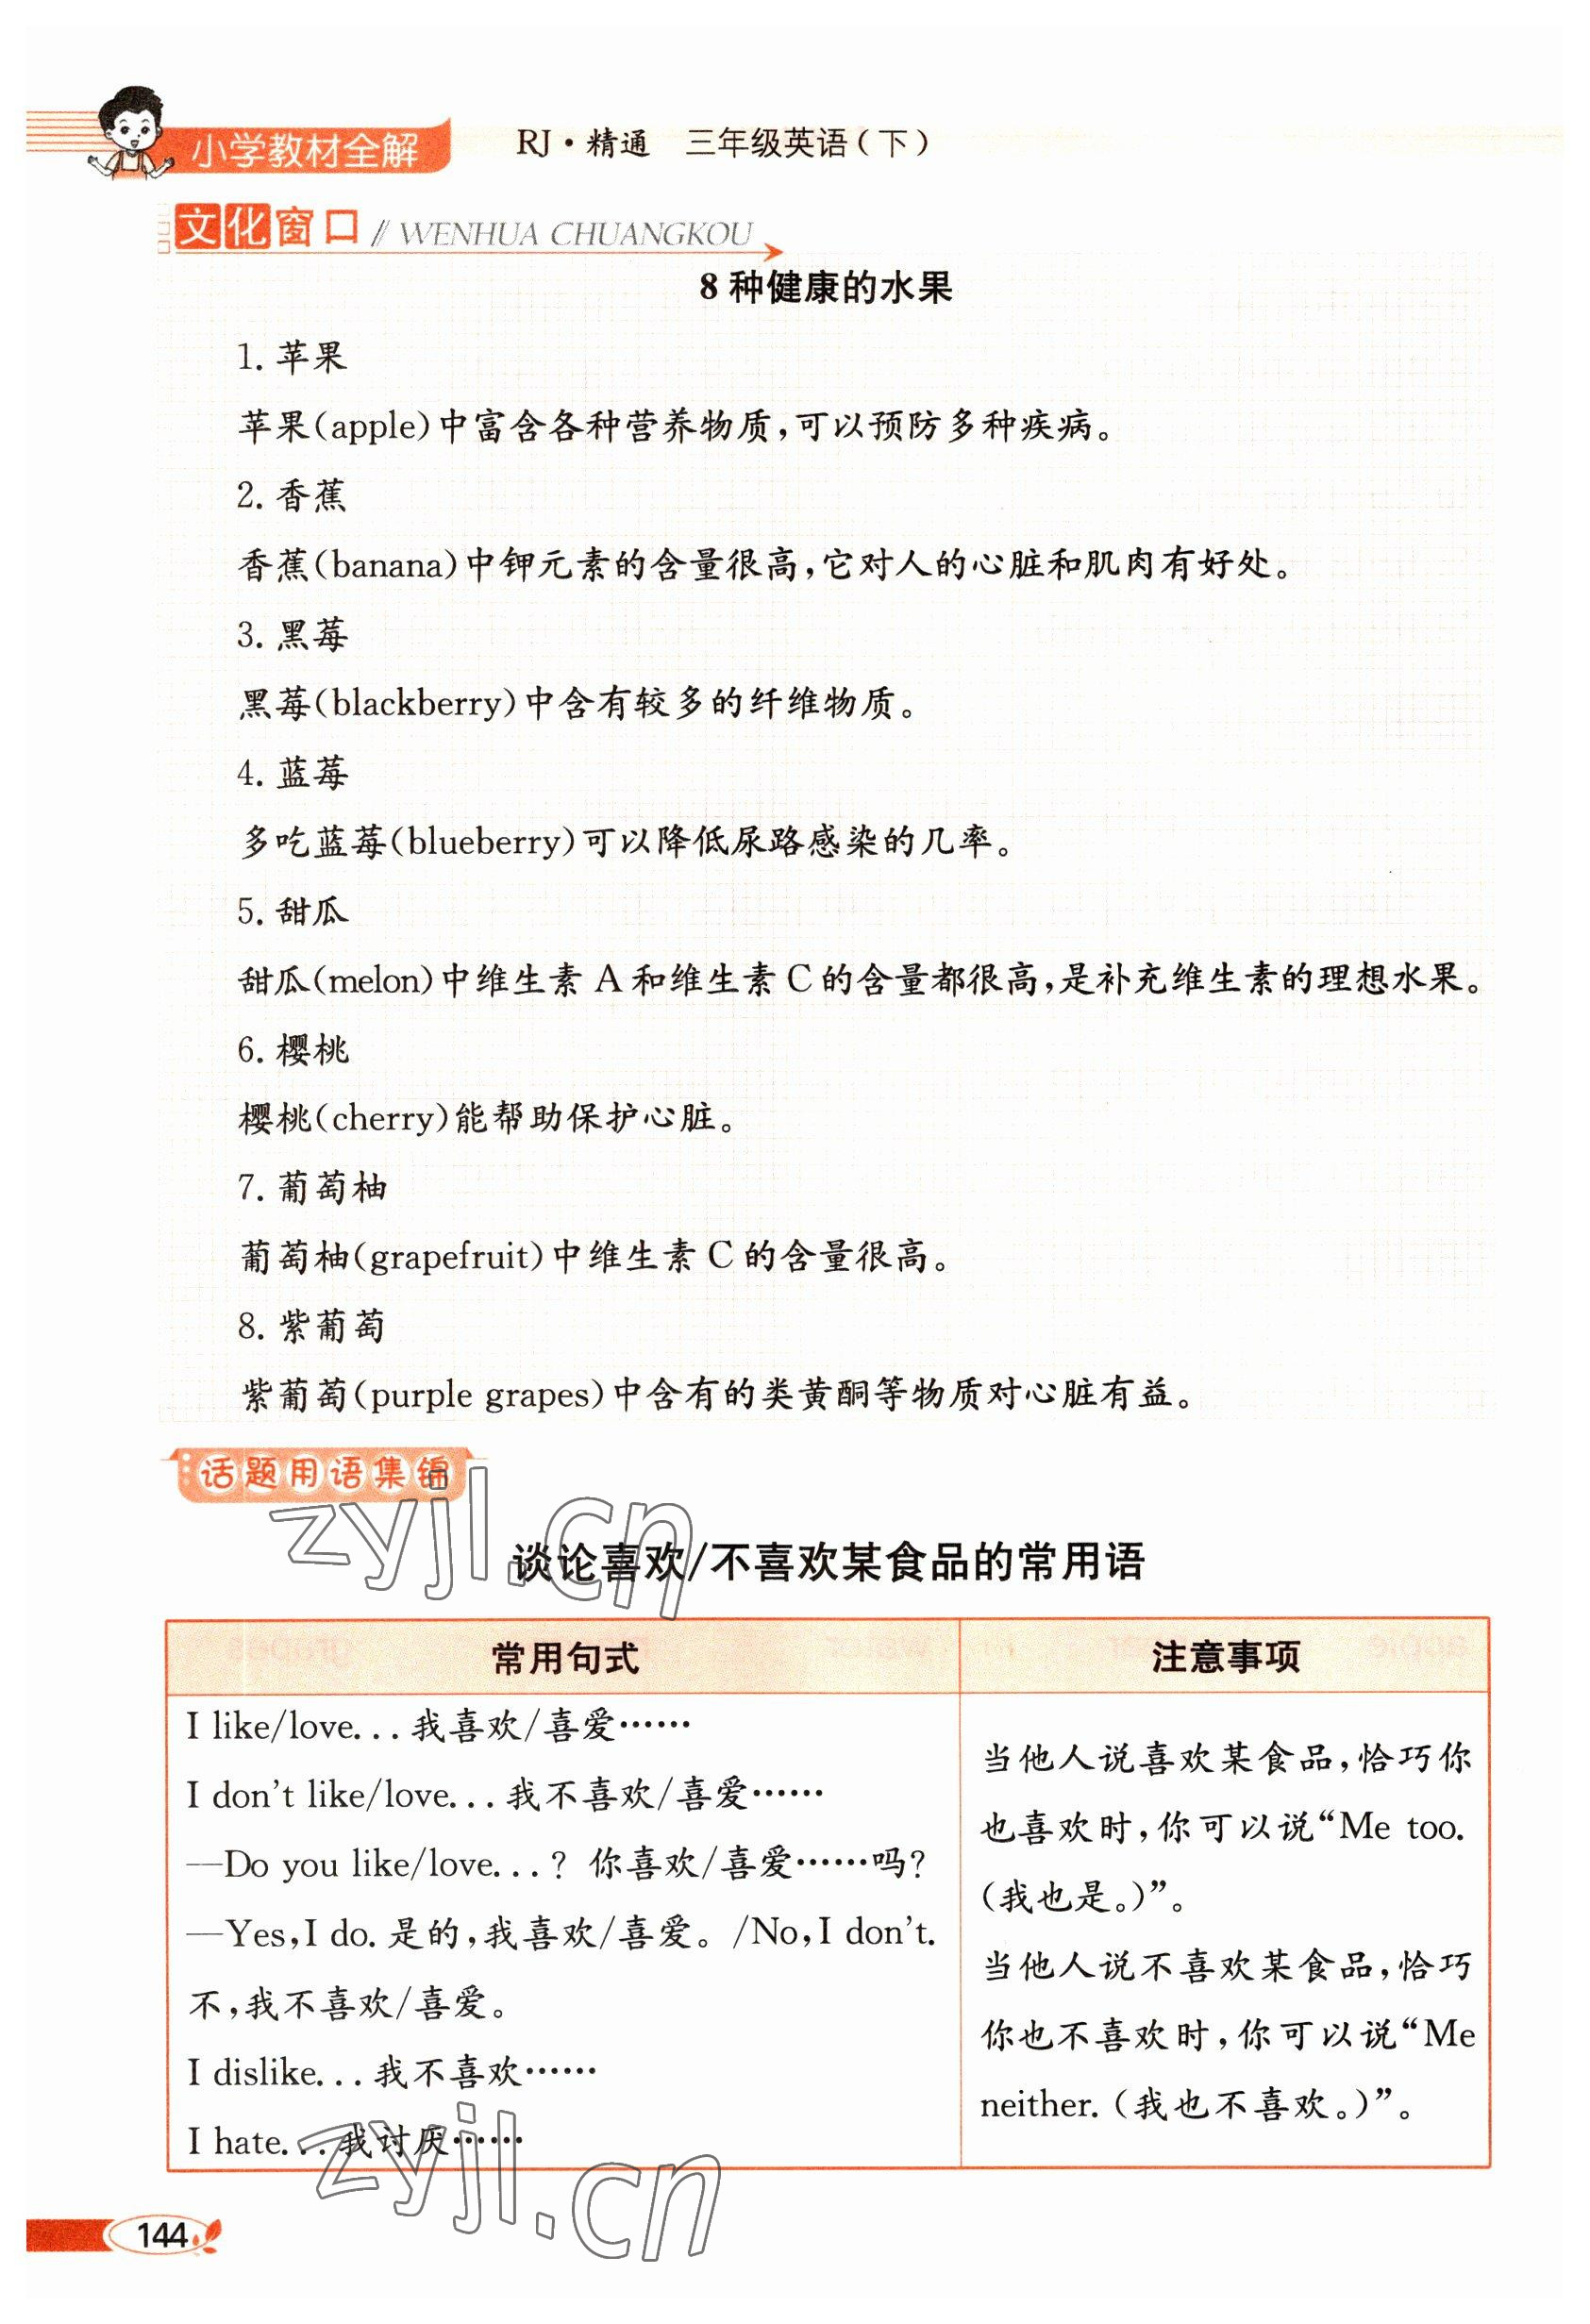 小学教材全解
RJ·精通 三年级英语(下)
文化窗口 // WENHUA CHUANGKOU
8 种健康的水果
1. 苹果
苹果(apple)中富含各种营养物质,可以预防多种疾病。
2. 香蕉
香蕉(banana)中钾元素的含量很高,它对人的心脏和肌肉有好处。
3. 黑莓
黑莓(blackberry)中含有较多的纤维物质。
4. 蓝莓
多吃蓝莓(blueberry)可以降低尿路感染的几率。
5. 甜瓜
甜瓜(melon)中维生素 A 和维生素 C 的含量都很高,是补充维生素的理想水果。
6. 樱桃
樱桃(cherry)能帮助保护心脏。
7. 葡萄柚
葡萄柚(grapefruit)中维生素 C 的含量很高。
8. 紫葡萄
紫葡萄(purple grapes)中含有的类黄酮等物质对心脏有益。
话题用语集锦
zyjl.cn
谈论喜欢/不喜欢某食品的常用语
常用句式
I like/love...我喜欢/喜爱……
I don't like/love...我不喜欢/喜爱……
—Do you like/love...? 你喜欢/喜爱……吗?
—Yes,I do. 是的,我喜欢/喜爱。/No,I don't.
不,我不喜欢/喜爱。
I dislike...我不喜欢……
I hate...我讨厌……
注意事项
当他人说喜欢某食品,恰巧你
也喜欢时,你可以说“Me too.
(我也是。)”。
当他人说不喜欢某食品,恰巧
你也不喜欢时,你可以说“Me
neither.(我也不喜欢。)”。
zyjl.cn
144